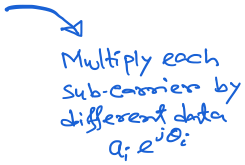 Multiply each
sub-carrier by
different data
aᵢ e^{jθᵢ}